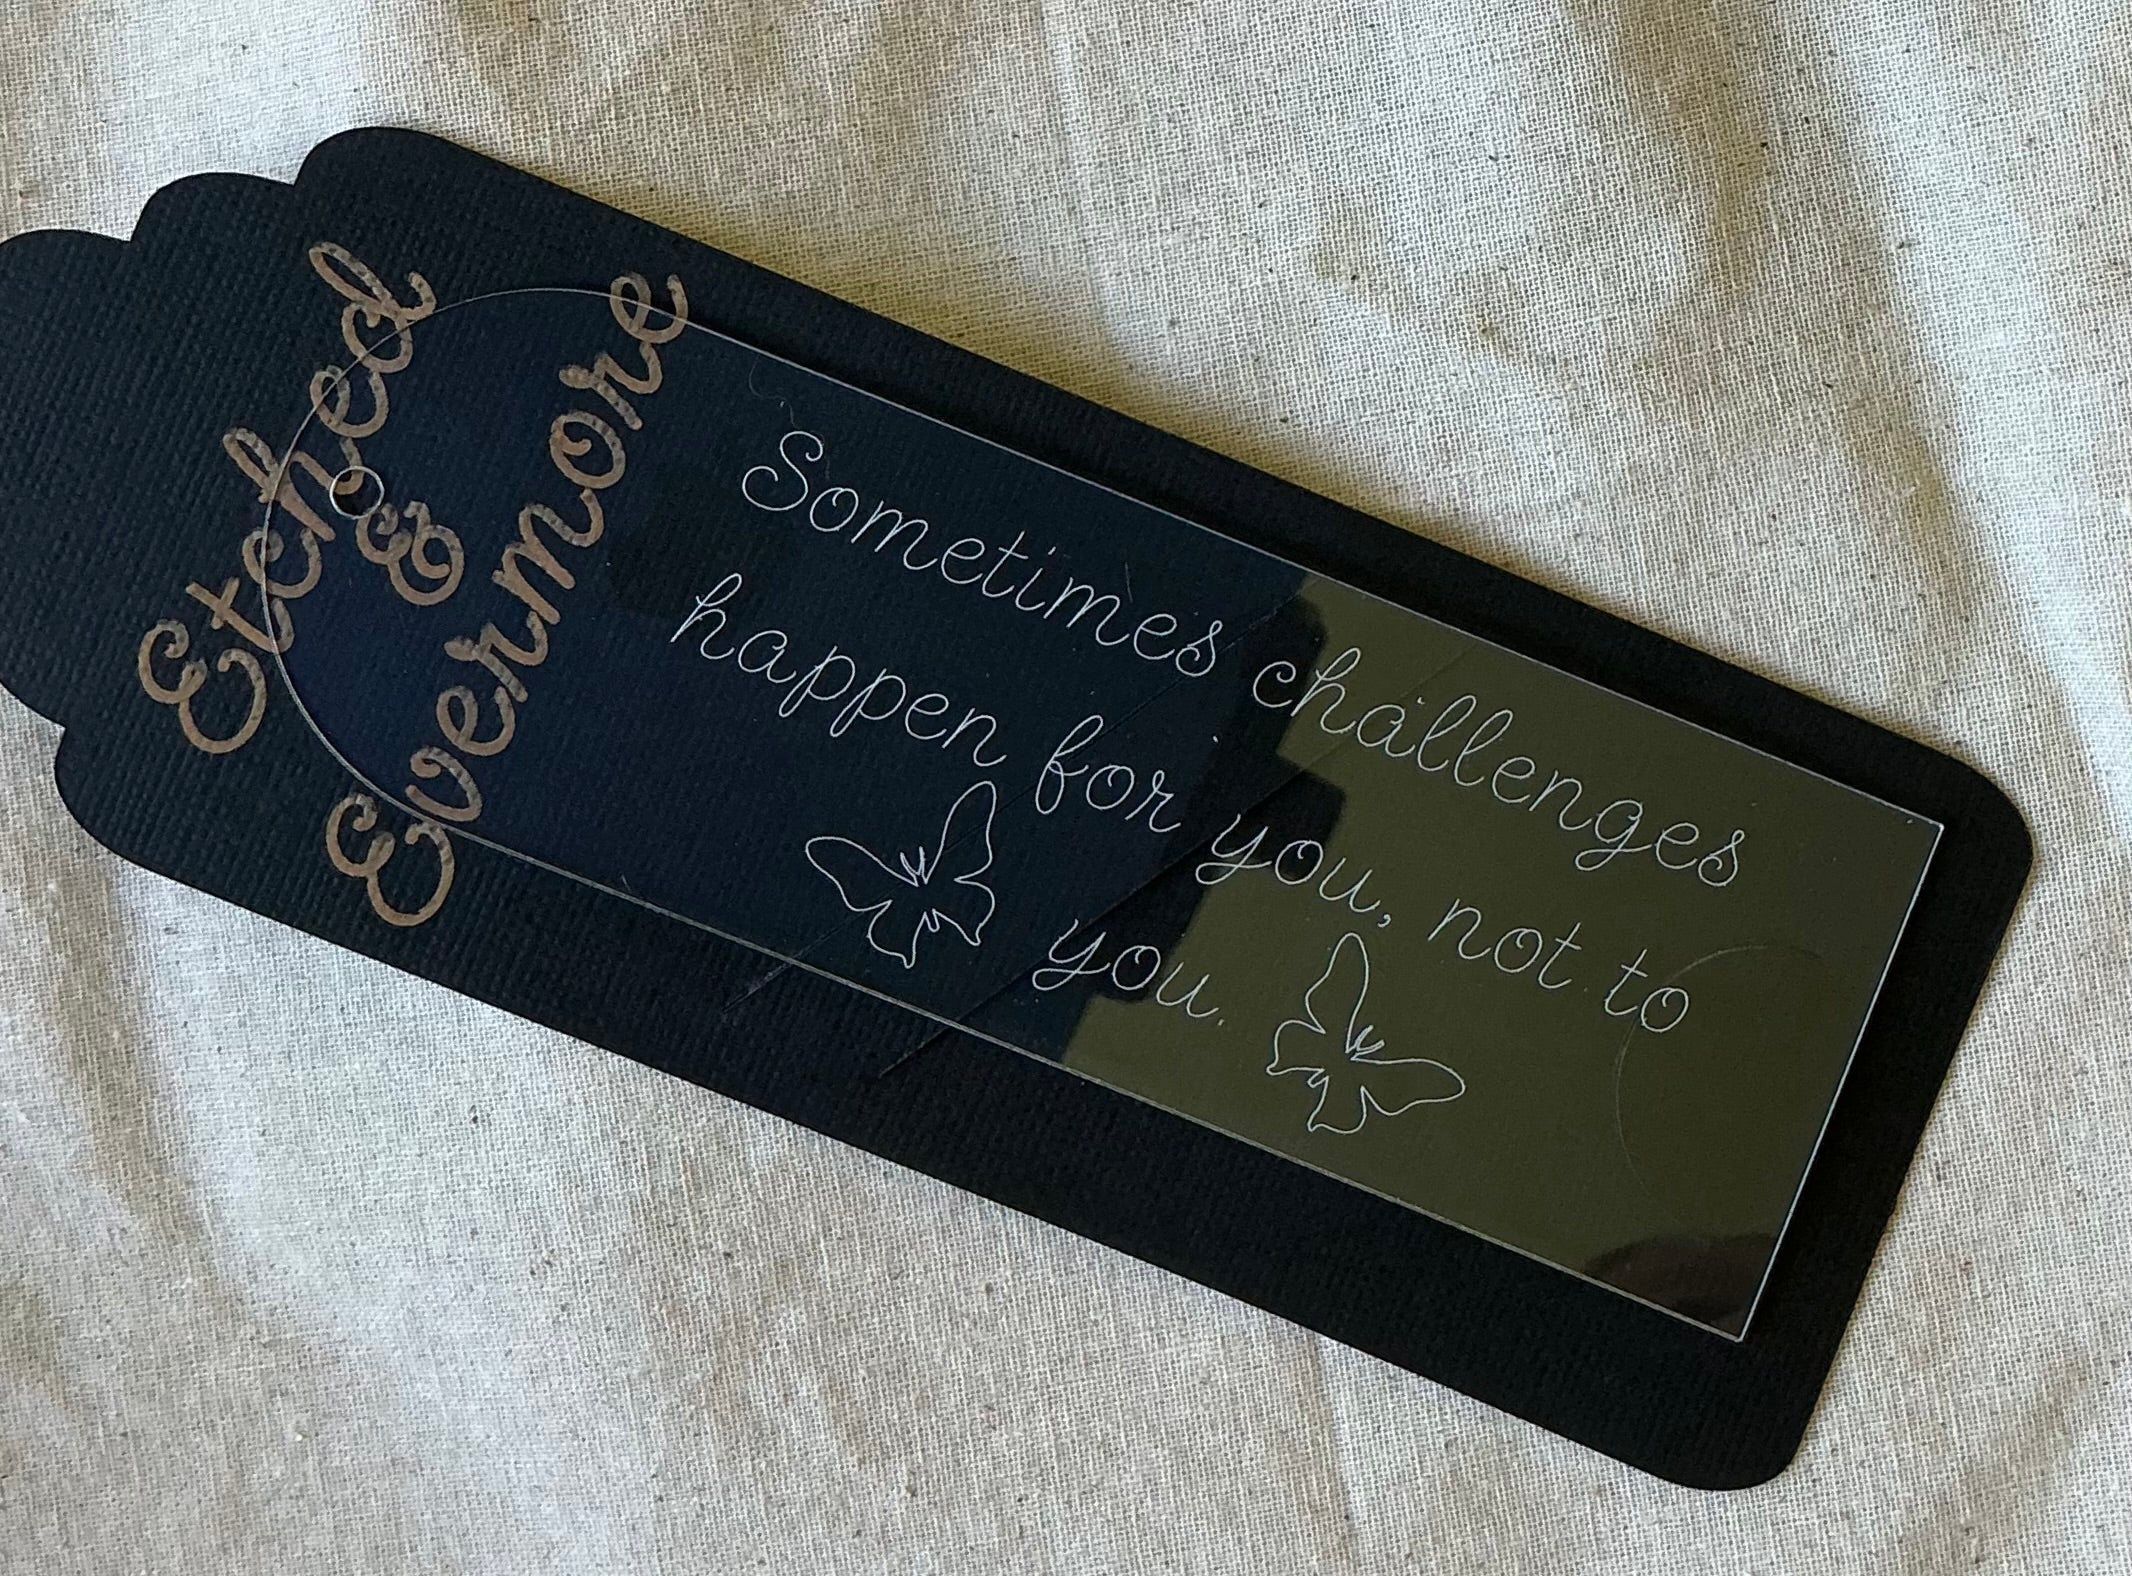 Etched
&
Evermore
Sometimes challenges
happen for you, not to
you.